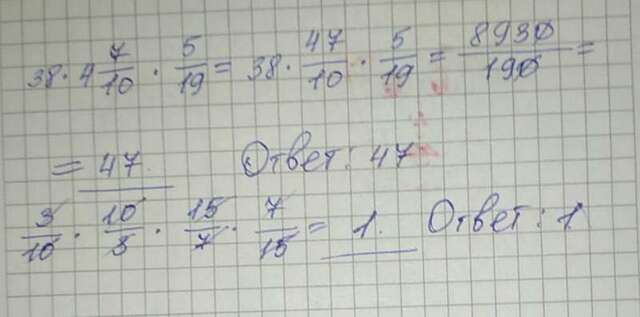 38 · 4 7/10 · 5/19 = 38 · 47/10 · 5/19 = 8930/190 =
= 47. Ответ: 47
3/10 · 10/3 · 15/7 · 7/15 = 1. Ответ: 1